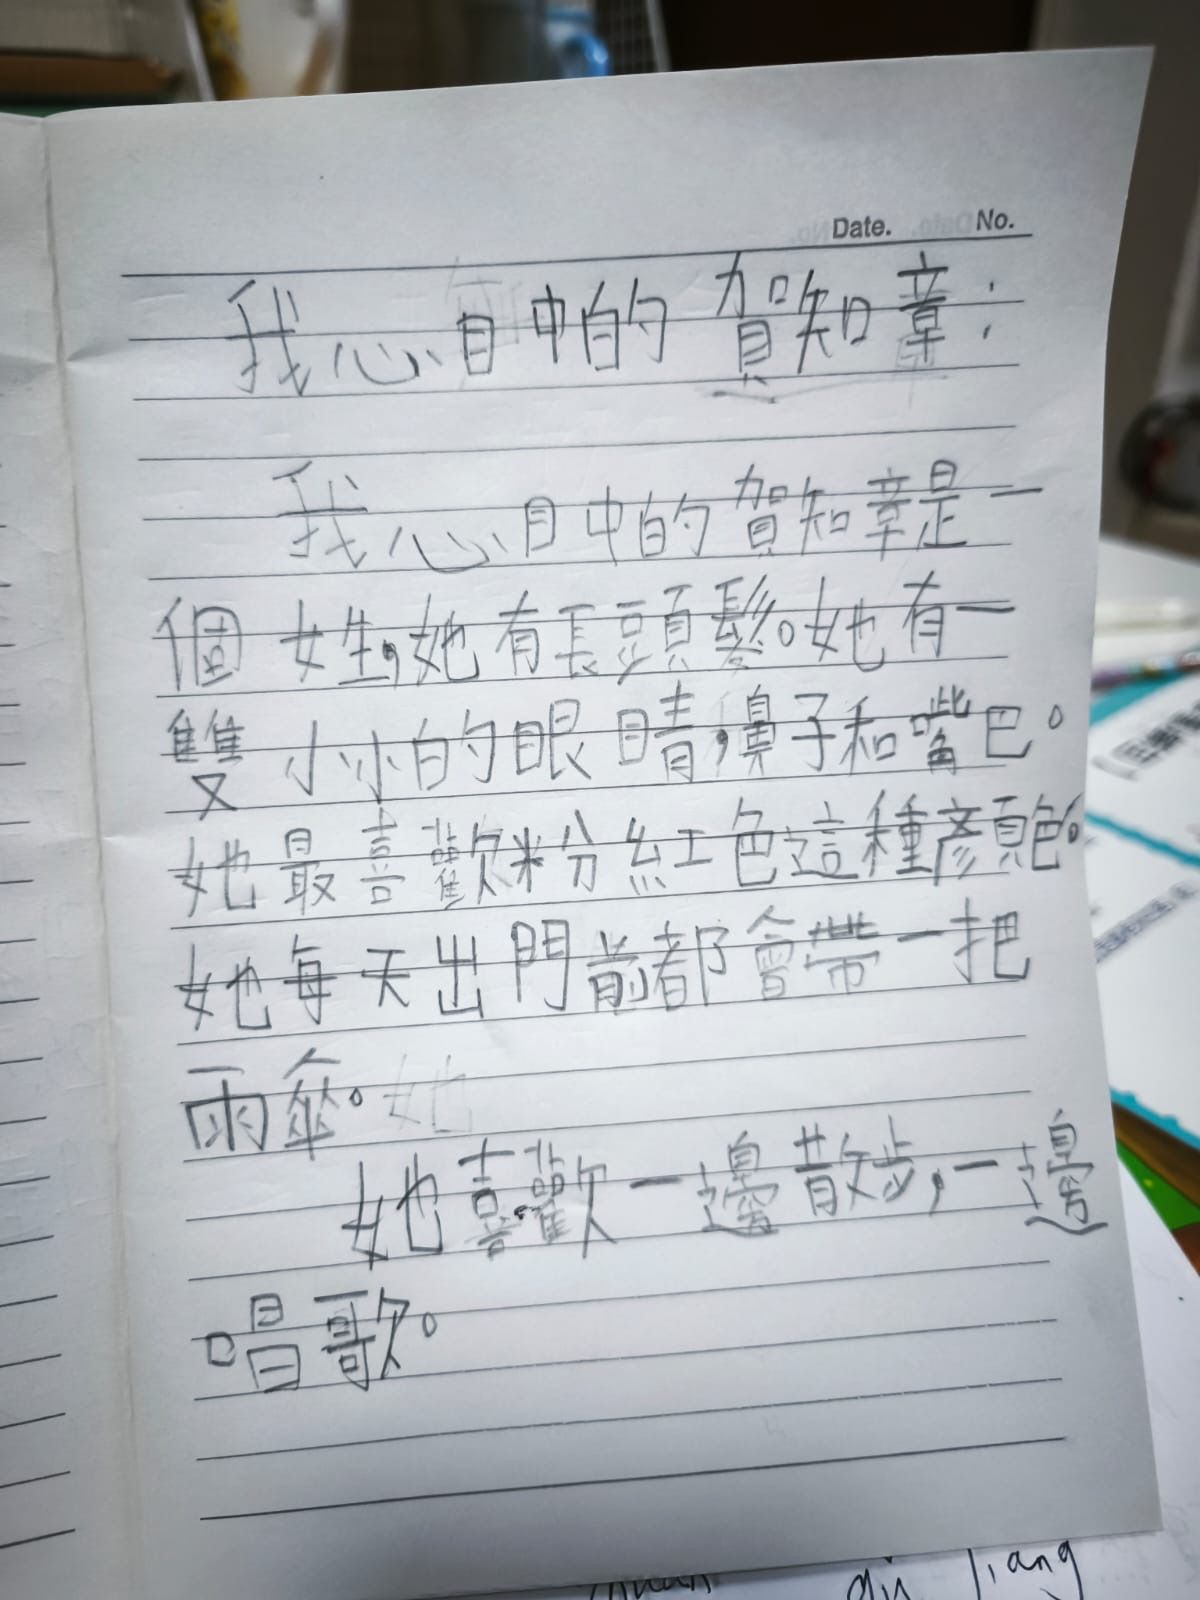 Date. No.
我心目中的賀知章：
我心目中的賀知章是一
個女生，她有長頭髮。她有一
雙小小的眼睛，鼻子和嘴巴。
她最喜歡粉紅色這種顏色。
她每天出門前都會帶一把
雨傘。她
她喜歡一邊散步，一邊
唱歌。
qiu jiang